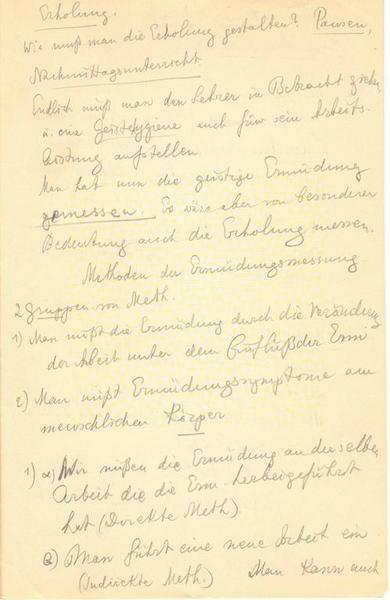 Erholung.
Wie muß man die Erholung gestalten? Pausen,
Nachmittagsunterricht
Endlich muß man den Lehrer in Betracht ziehen
u. eine Geisteshygiene auch für sein Arbeits-
leistung aufstellen
Man hat nun die geistige Ermüdung
gemessen. Es wäre aber von besonderer
Bedeutung auch die Erholung messen.
Methoden der Ermüdungsmessung
2 Gruppen von Meth.
1) Man mißt die Ermüdung durch die Veränderung
der Arbeit unter dem Einfluß der Erm
2) Man mißt Ermüdungssymptome am
menschlichen Körper
1) α) Wir müßen die Ermüdung an derselben
Arbeit die die Erm. herbeigeführt
hat (Direkte Meth)
Man führt eine neue Arbeit ein
(Indirekte Meth.) Man kann auch